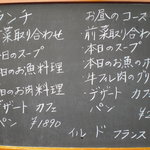 ランチ
前菜取り合わせ
本日のスープ
本日のお魚料理
本日のお肉料理
デザート カフェ
パン ¥1890
お昼のコース
前菜取り合わ
本日のスープ
本日のお魚の
牛フィレ肉のグリ
デザート カフェ
パン
イル ド フランス